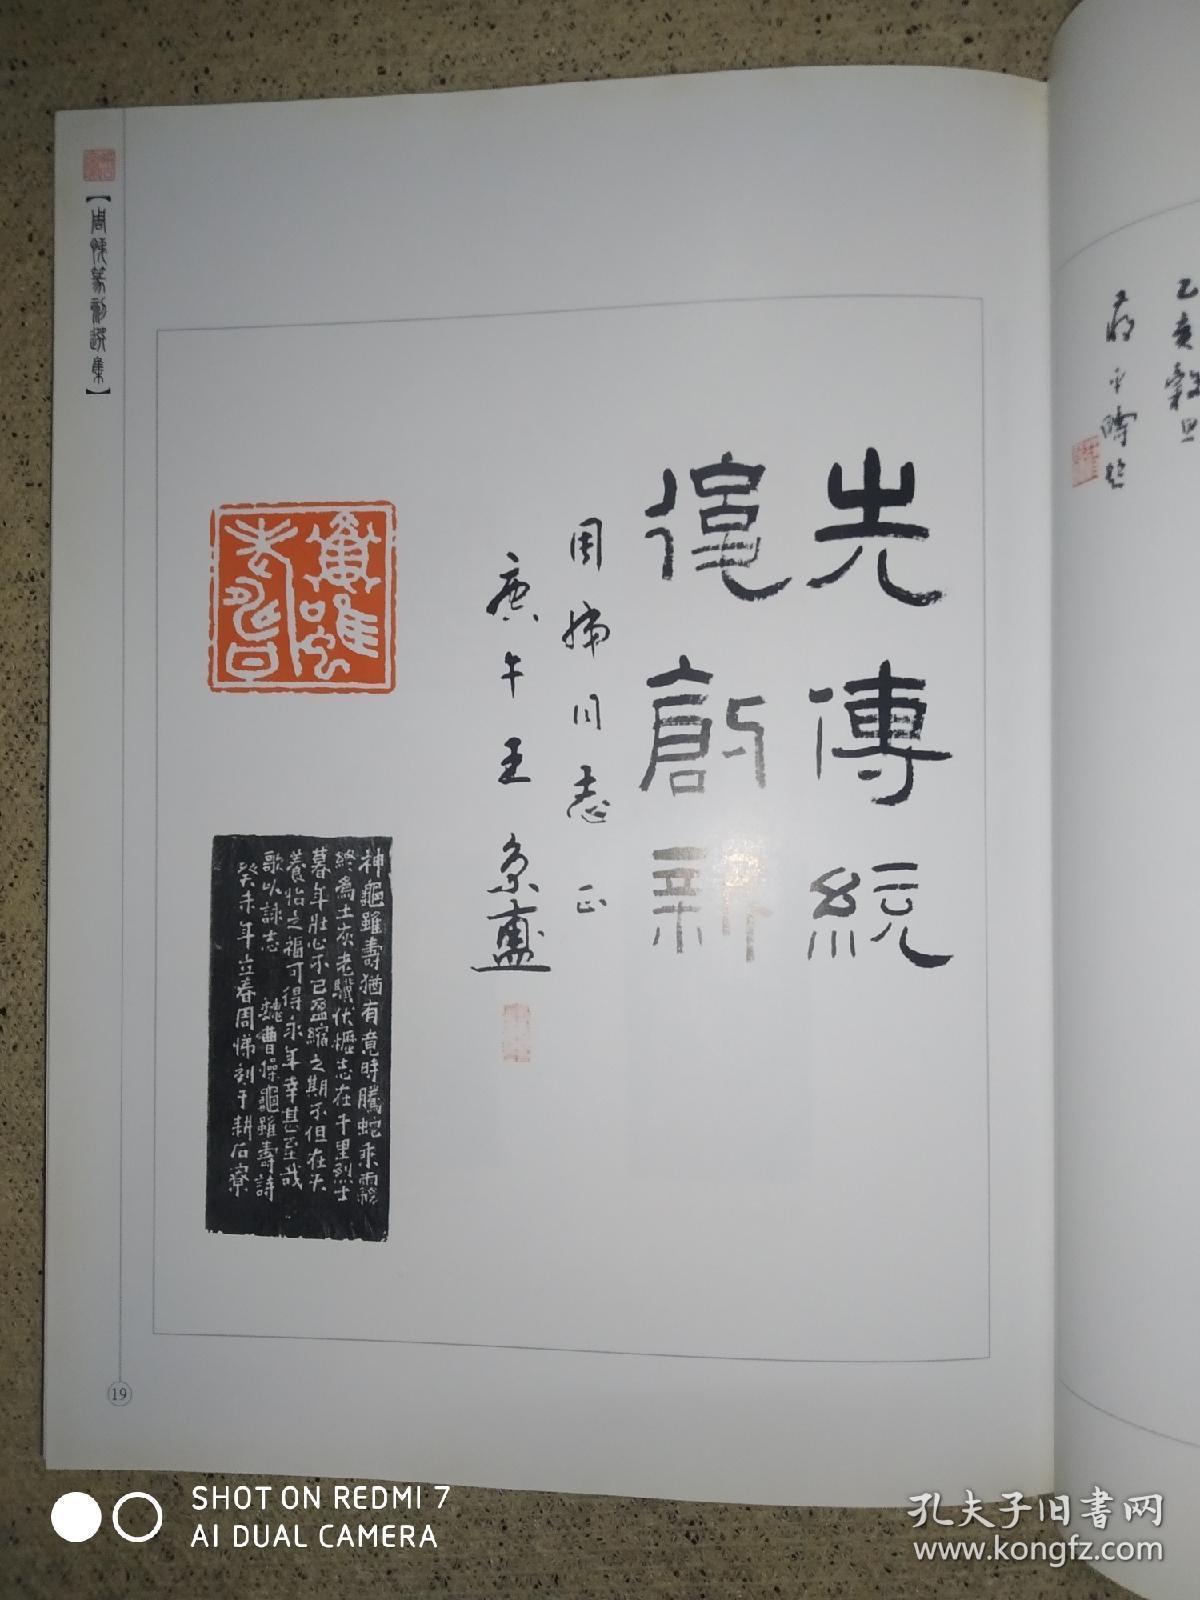 【周悌篆刻選集】
先傳統
後啟新
周悌同志正
庚午王京盙
神龜雖壽猶有竟時騰蛇乘霧
終為土灰老驥伏櫪志在千里烈士
暮年壯心不已盈縮之期不但在天
養怡之福可得永年幸甚至哉
歌以詠志 魏曹操龜雖壽詩
癸未年立春周悌刻于耕石寮
乙亥穀旦
19
SHOT ON REDMI 7
AI DUAL CAMERA
孔夫子旧书网
www.kongfz.com